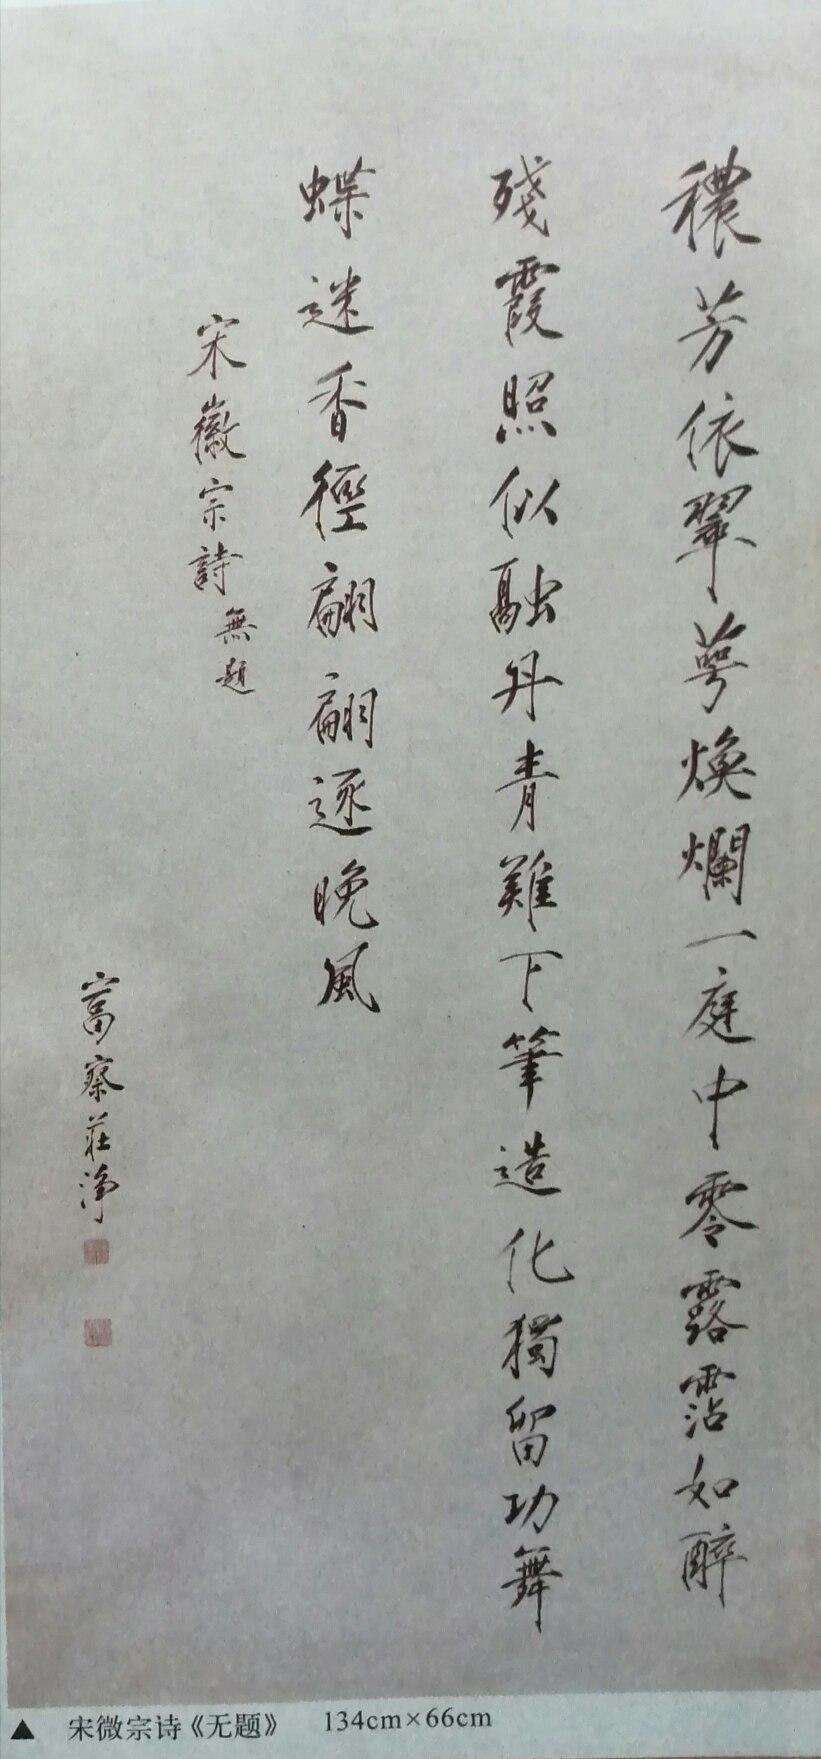 穠芳依翠萼煥爛一庭中零露霑如醉
殘霞照似融丹青難下筆造化獨留功舞
蝶迷香徑翩翩逐晚風
宋徽宗詩無題
富察莊淨
▲ 宋微宗诗《无题》 134cm×66cm